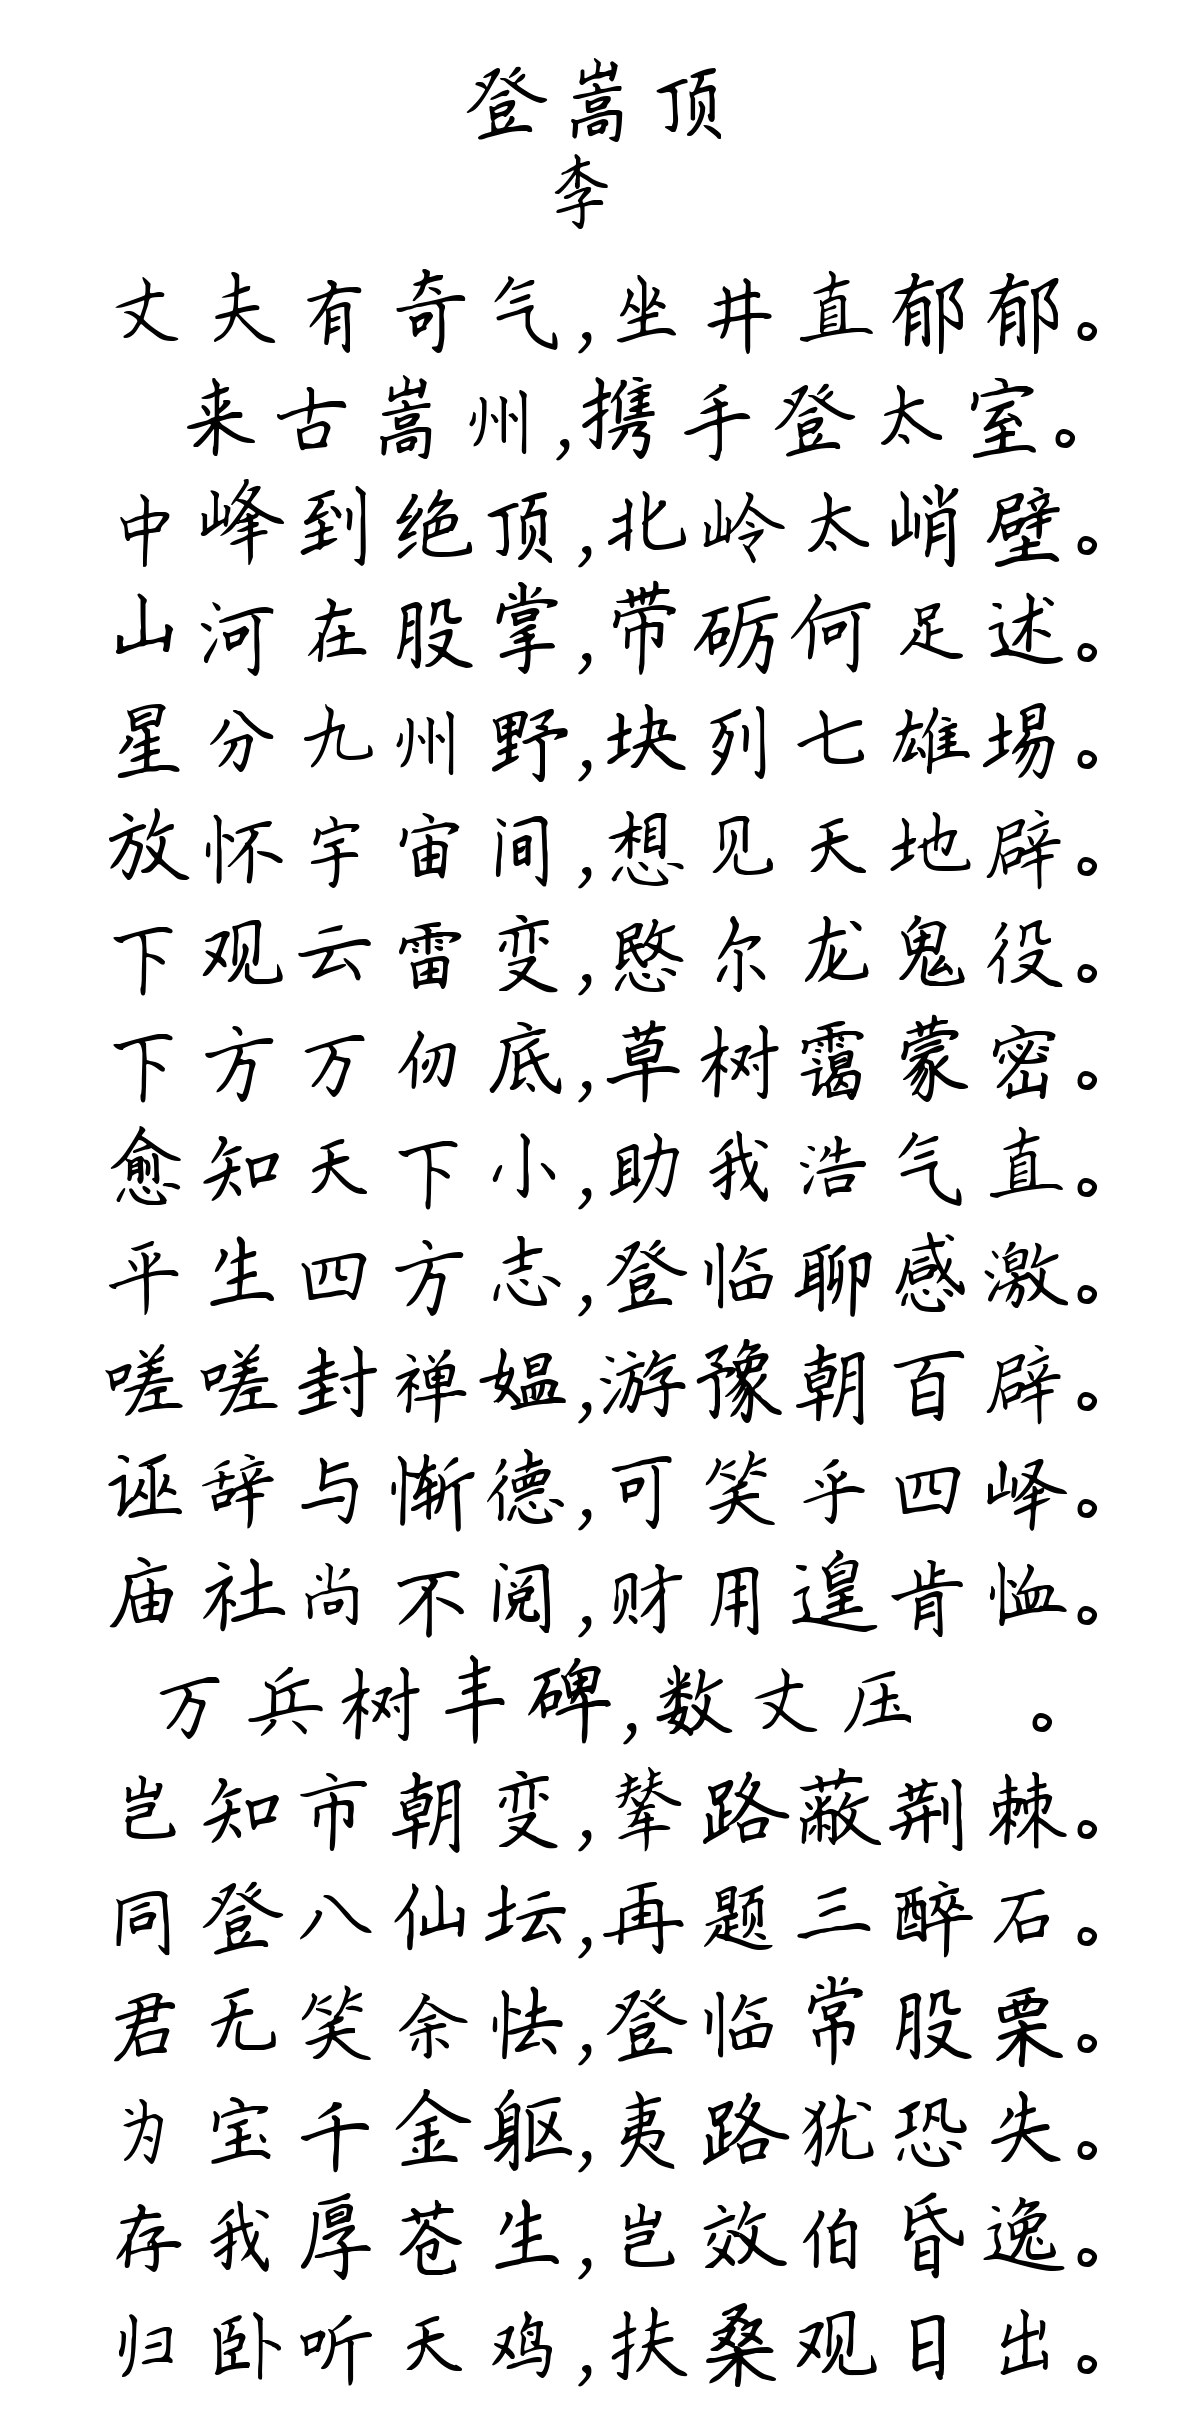 登嵩顶
李
丈夫有奇气,坐井直郁郁。
来古嵩州,携手登太室。
中峰到绝顶,北岭太峭壁。
山河在股掌,带砺何足述。
星分九州野,块列七雄埸。
放怀宇宙间,想见天地辟。
下观云雷变,愍尔龙鬼役。
下方万仞底,草树霭蒙密。
愈知天下小,助我浩气直。
平生四方志,登临聊感激。
嗟嗟封禅媪,游豫朝百辟。
诬辞与惭德,可笑乎四峄。
庙社尚不阅,财用遑肯恤。
万兵树丰碑,数丈压 。
岂知市朝变,辇路蔽荆棘。
同登八仙坛,再题三醉石。
君无笑余怯,登临常股栗。
为宝千金躯,夷路犹恐失。
存我厚苍生,岂效伯昏逸。
归卧听天鸡,扶桑观日出。